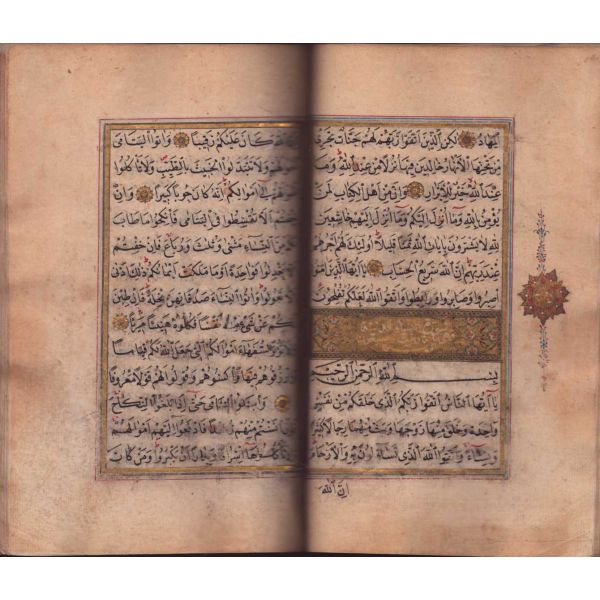 المهاد لكن الذين اتقوا ربهم لهم جنات تجري
من تحتها الانهار خالدين فيها نزلا من عند الله وما
عند الله خير للابرار وان من اهل الكتاب لمن
يؤمن بالله وما انزل اليكم وما انزل اليهم خاشعين
لله لا يشترون بايات الله ثمنا قليلا اولئك لهم اجرهم
عند ربهم ان الله سريع الحساب يا ايها الذين امنوا
اصبروا وصابروا ورابطوا واتقوا الله لعلكم تفلحون
بسم الله الرحمن الرحيم
يا ايها الناس اتقوا ربكم الذي خلقكم من نفس
واحدة وخلق منها زوجها وبث منهما رجالا كثيرا
ونساء واتقوا الله الذي تساءلون به والارحام
ان الله
الله كان عليكم رقيبا واتوا اليتامى
اموالهم ولا تتبدلوا الخبيث بالطيب ولا تاكلوا
اموالهم الى اموالكم انه كان حوبا كبيرا وان
خفتم الا تقسطوا في اليتامى فانكحوا ما طاب
لكم من النساء مثنى وثلث ورباع فان خفتم
تعدلوا فواحدة او ما ملكت ايمانكم ذلك ادنى
الا تعولوا واتوا النساء صدقاتهن نحلة فان طبن
لكم عن شيء منه نفسا فكلوه هنيئا مريئا
تؤتوا السفهاء اموالكم التي جعل الله لكم قياما
وارزقوهم فيها واكسوهم وقولوا لهم قولا معروفا
وابتلوا اليتامى حتى اذا بلغوا النكاح
فان انستم منهم رشدا فادفعوا اليهم اموالهم
ولا تاكلوها اسرافا وبدارا ان يكبروا ومن كان